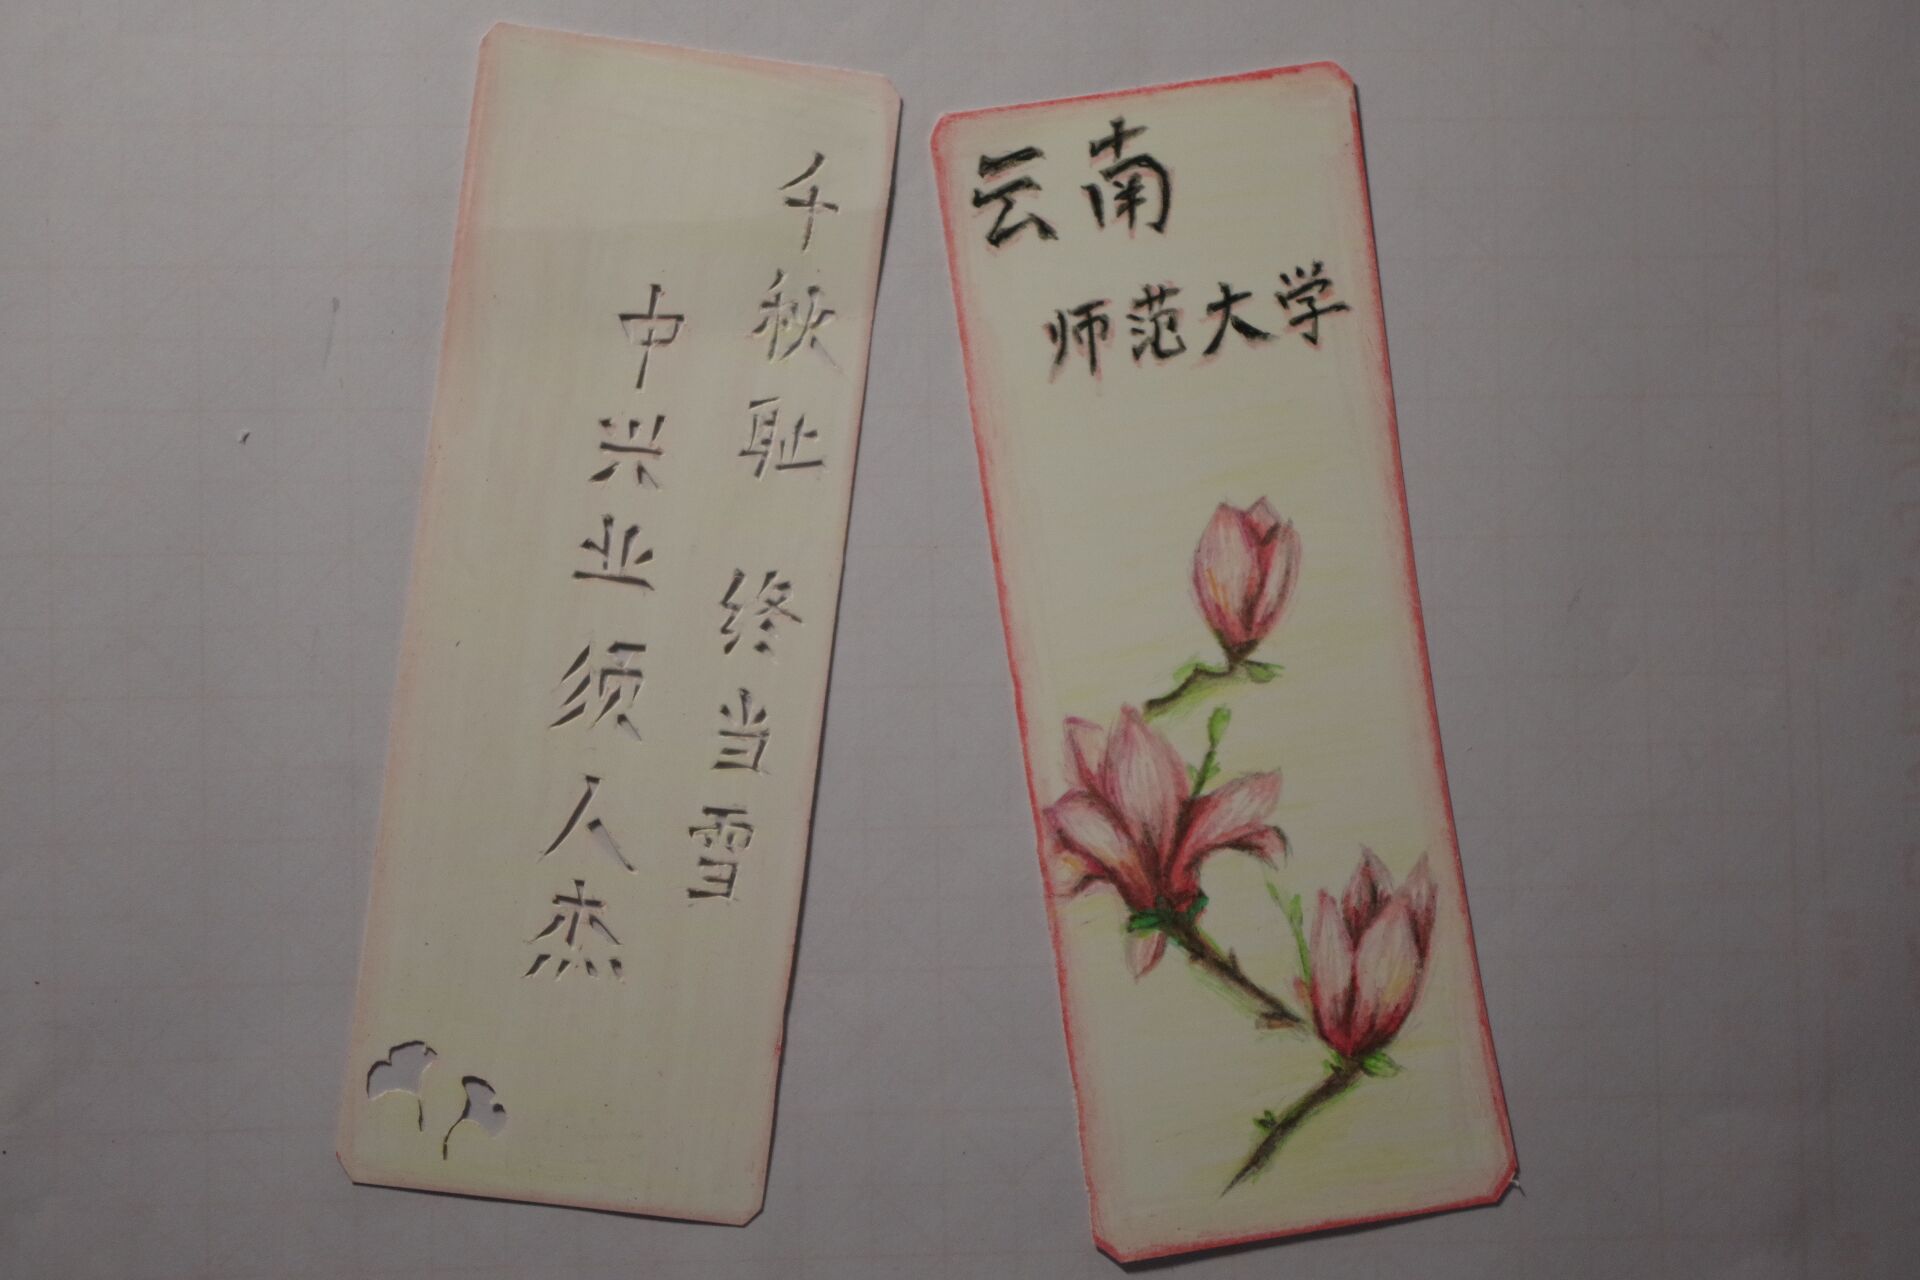 千秋耻 终当雪
中兴业须人杰
云南
师范大学